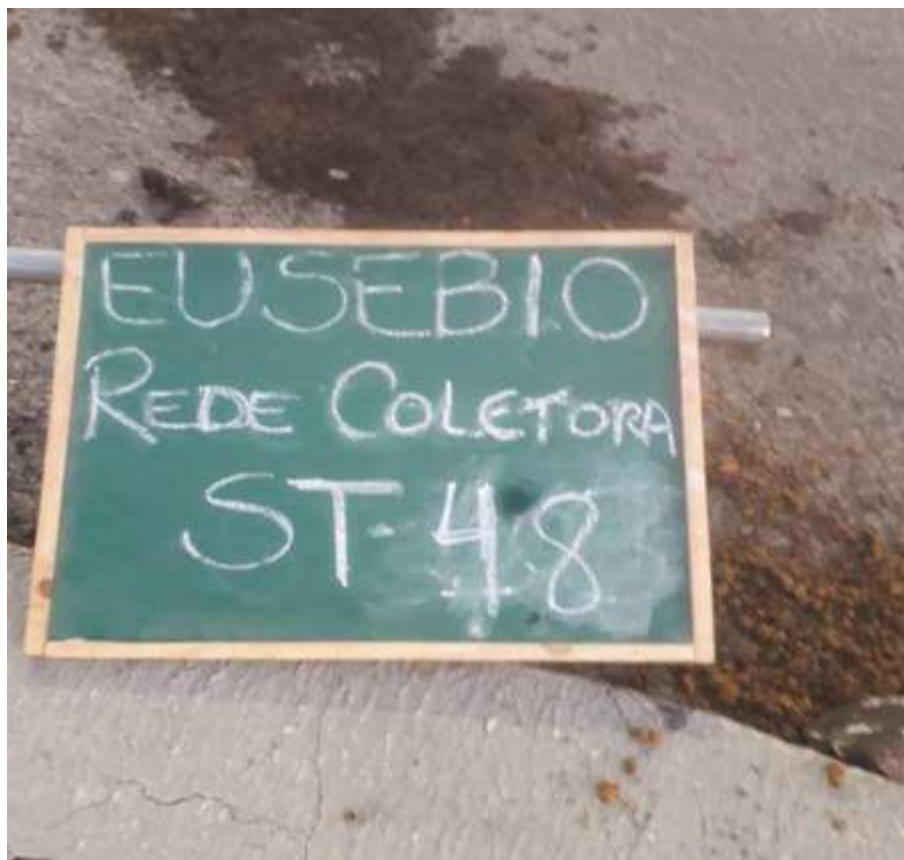 EUSEBIO
REDE COLETORA
ST-48